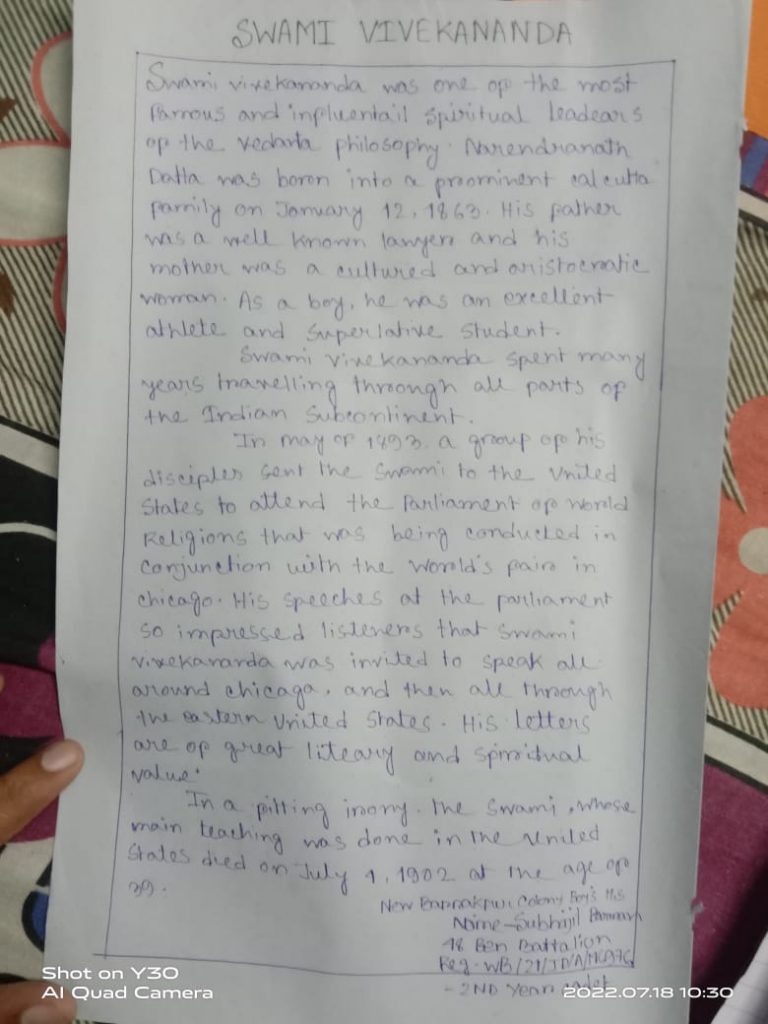 SWAMI VIVEKANANDA
Swami vivekananda was one of the most
famous and influentail spiritual leadears
of the vedanta philosophy. Narendranath
Datta was boron into a proominent calcutta
family on January 12, 1863. His father
was a well known lawyer and his
mother was a cultured and aristocratic
woman. As a boy, he was an excellent
athlete and superlative student.
Swami vivekananda spent many
years travelling through all parts of
the Indian Subcontinent.
In may of 1893. a group of his
disciples sent the Swami to the United
States to attend the Parliament of World
Religions that was being conducted in
conjunction with the World's fair in
chicago. His speeches at the parliament
so impressed listeners that Swami
vivekananda was invited to speak all
around chicaga, and then all through
the eastern United States. His letters
are of great liteary and spiritual
value.
In a fitting irony. the Swami, whose
main teaching was done in the United
States died on July 4, 1902 at the age of
39.
New Colony Boy's H.S
Name-Subhijil
48 Ben Battalion
Reg-WB/21/
-2ND Year cadet
Shot on Y30
AI Quad Camera
2022.07.18 10:30